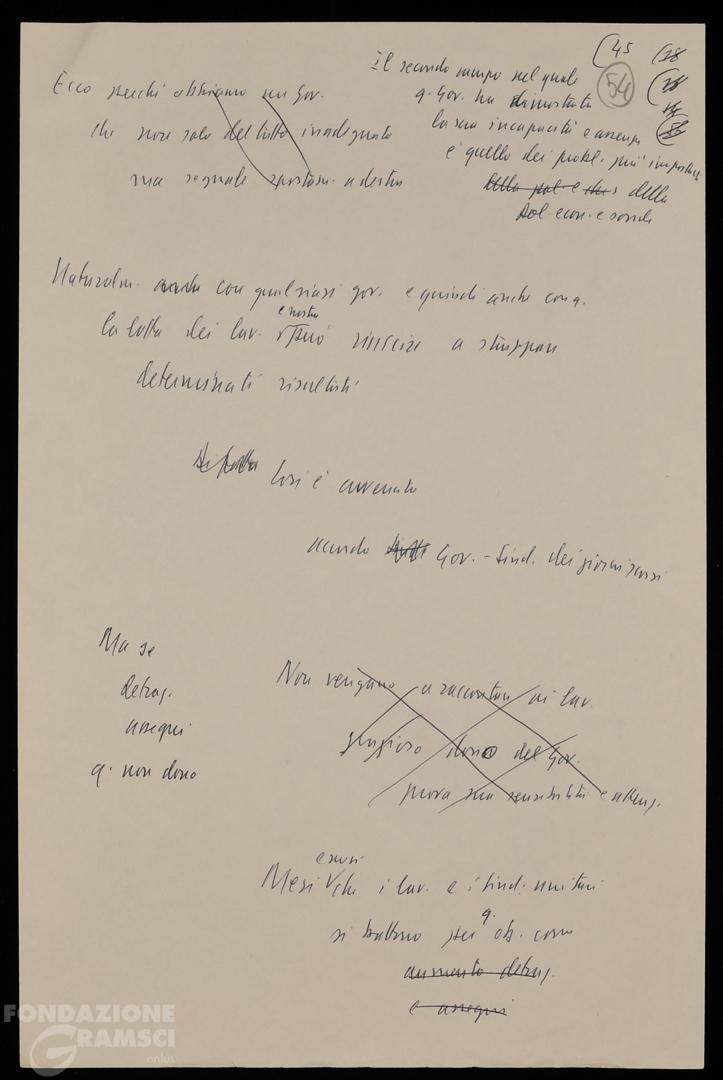 (45 (28
(54)
Il secondo campo nel quale
q. Gov. ha dimostrato
la sua incapacità e assenza
è quello dei probl. più importanti
della pol. e della
pol. econ. e sociale
Ecco perché abbiamo un Gov.
che non solo del tutto inadeguato
ma segnale spostam. a destra
Naturalm. anche con qualsiasi gov. e quindi anche con q.
la lotta dei lav. può riuscire a strappare
e nostra
determinati risultati
Così è avvenuto
accordo Gov. - Sind. dei giorni scorsi
Ma se
detraz.
assegni
q. non dono
Non vengano a raccontare ai lav.
grazioso dono del Gov.
prova sua sensibilità e attenz.
e mesi
Mesi che i lav. e i sind. unitari
si battono per q. ob. come
aumento detraz.
e assegni
FONDAZIONE
GRAMSCI
onlus